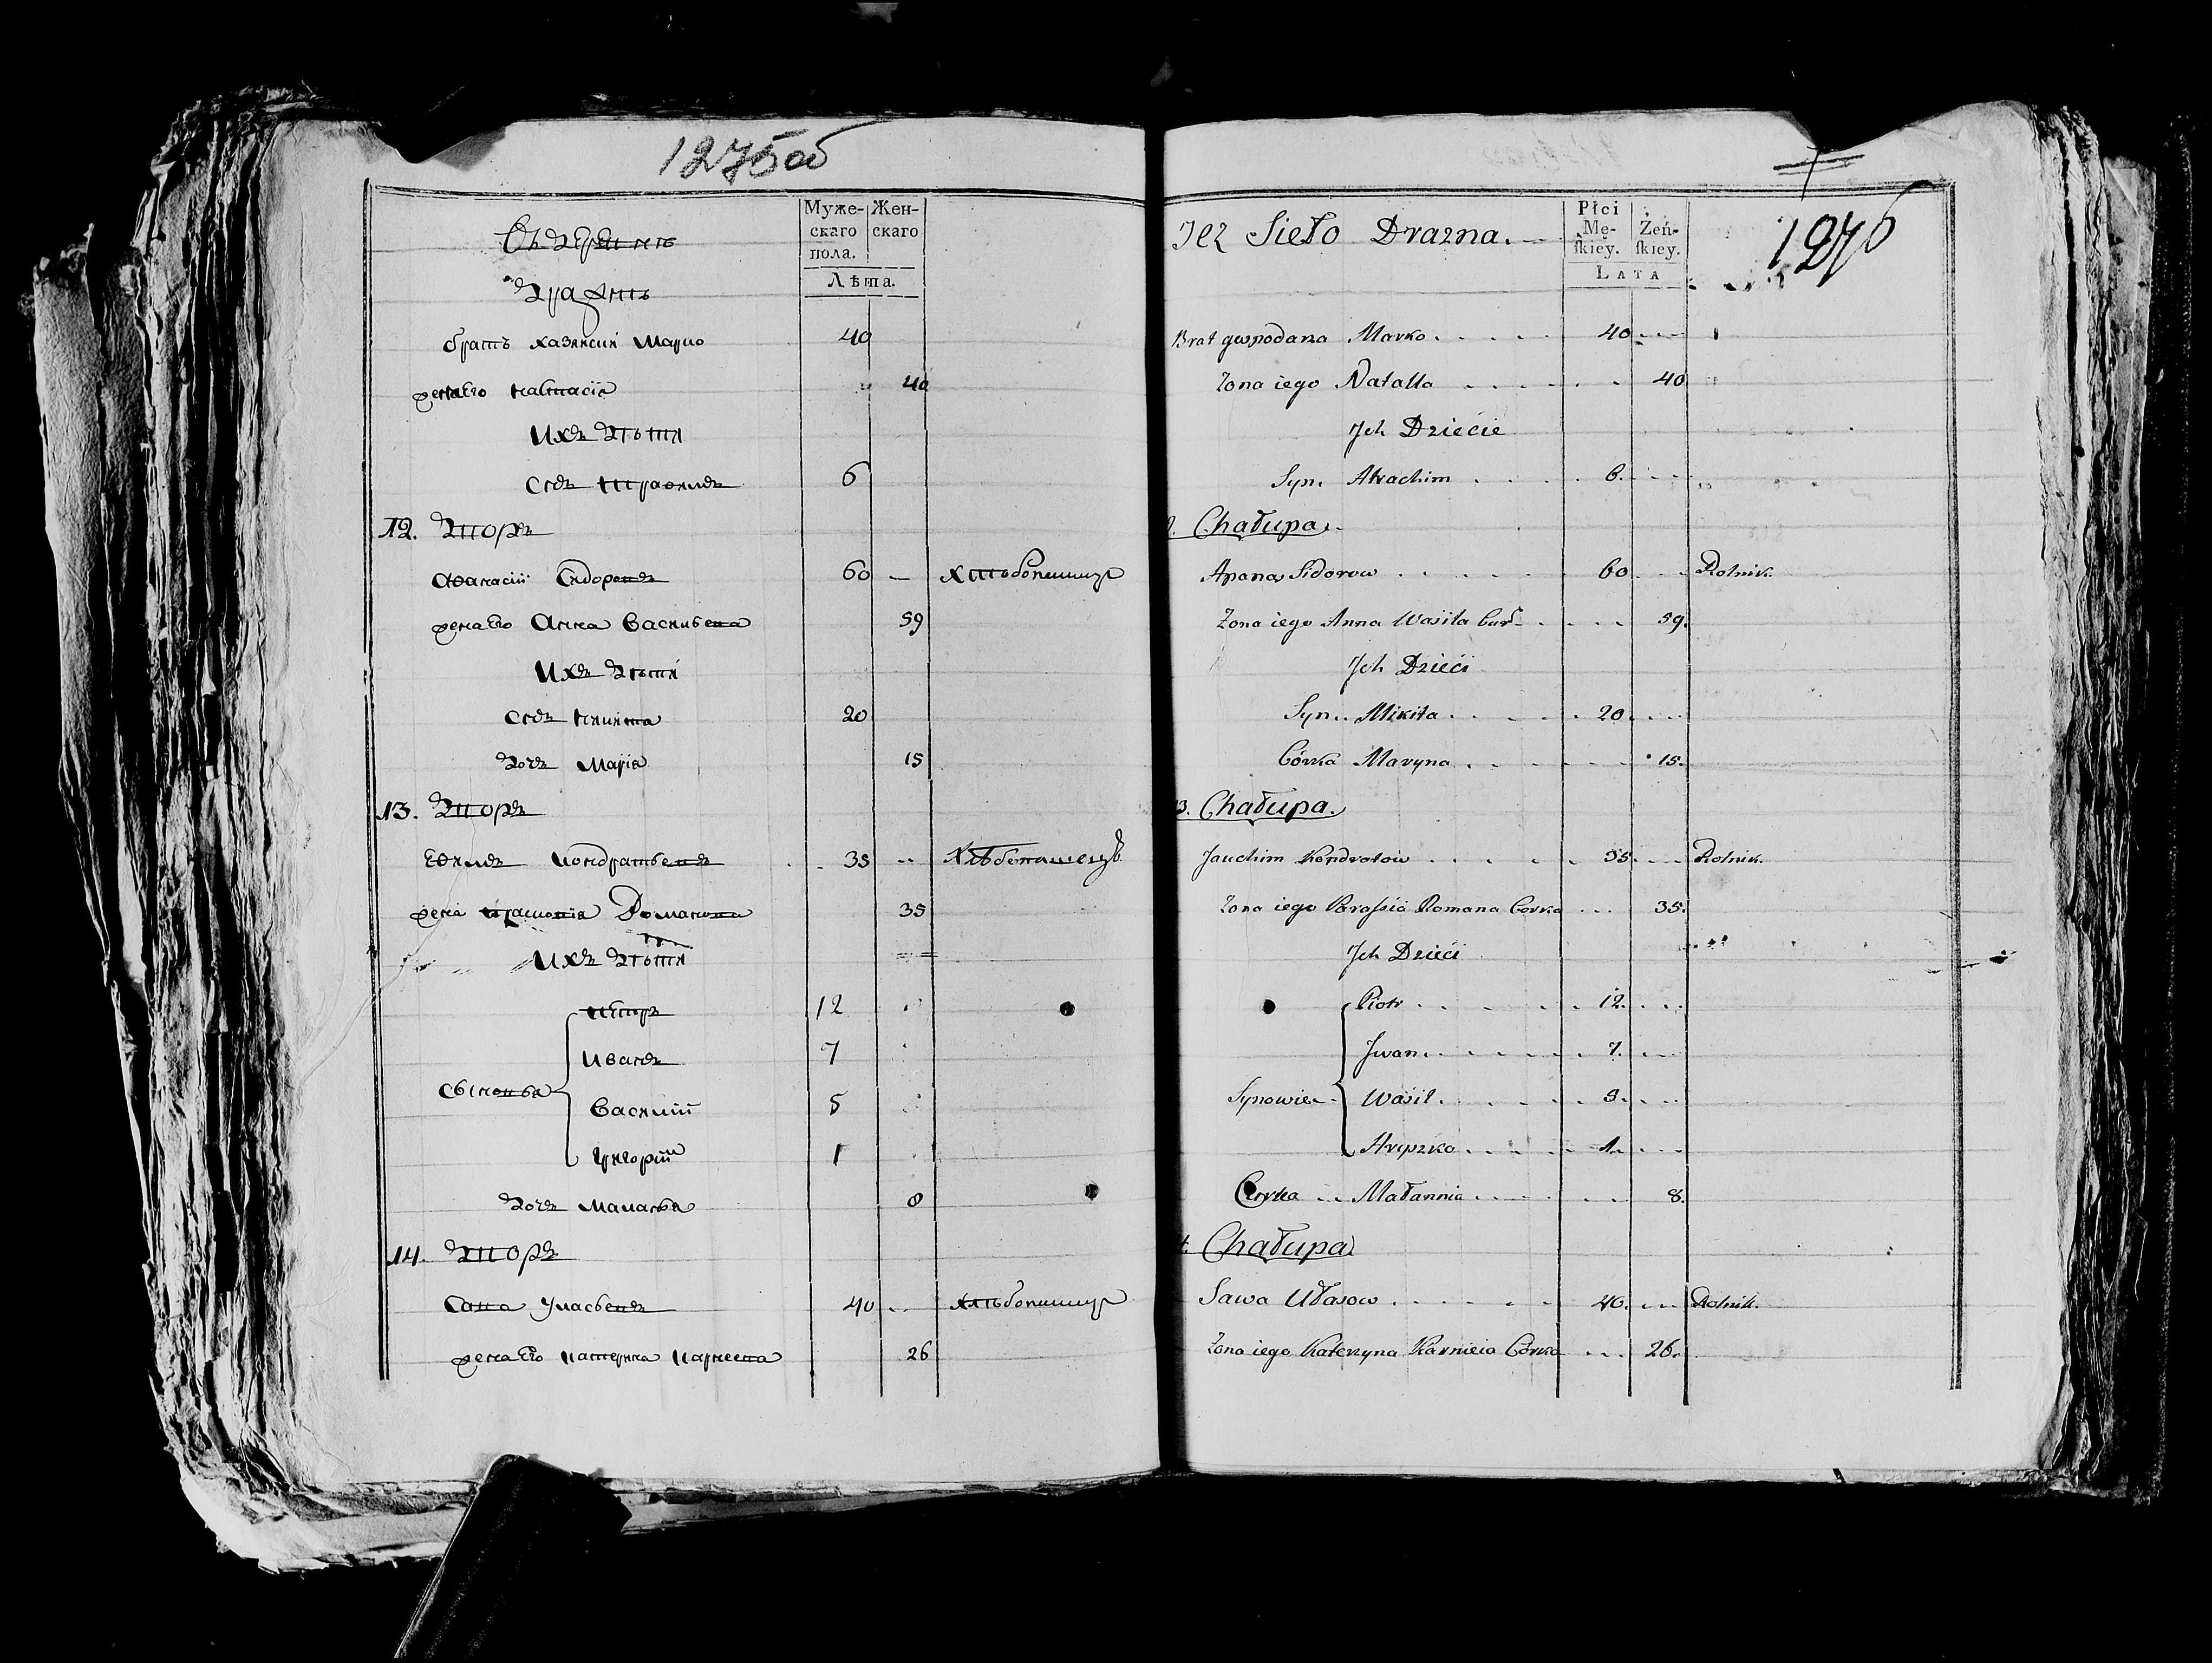 1275об
Въ деревнѣ
Дражнѣ
Муже-скаго пола.
Жен-скаго
Лѣта.
братъ хазяиси Марко 40
жена Его Настасія 40
Ихъ дѣти
Снъ Трафимъ 6
12. Дворъ
Афанасій Сидоровъ 60 — Хлѣбопашецъ
жена Его Анна Василева 59
Ихъ дѣти
Снъ Никита 20
Дочь Марія 15
13. Дворъ
Ефимъ Кондратьевъ 35 -- Хлѣбопашецъ
жена Романова 35
Ихъ дѣти
Сыновья
Петръ 12
Иванъ 7
Василій 5
Григорій 1
Дочь Маланья 8
14. Дворъ
Сава Уласьевъ 40 -- Хлѣбопашецъ
жена Его Катерина Карнеева 26
1276
Jez Sieło Drazna.
Płci Mę-ſkiey.
Żeń-ſkiey.
LATA
Brat gospodarza Marko 40
Zona iego Natalla 40
Jch Dziecie
Syn. 6.
Chałupa.
Apanas Sidorow 60 Rolnik.
Zona iego Anna Wasila Cur 59.
Jch Dzieci
Syn Mikita 20
Córka Maryna 15.
3. Chałupa.
Jauchim Kondratow 35 Rolnik.
Zona iego Parassia Romana Corka 35.
Jch Dzieci
Synowie
Piotr 12.
Jwan 7.
Wasil 5.
Hryszko 1.
Curka Małannia 8.
4. Chałupa
Sawa Ułasow 40. Rolnik.
Zona iego Katerzyna Karnieia Córka 26.